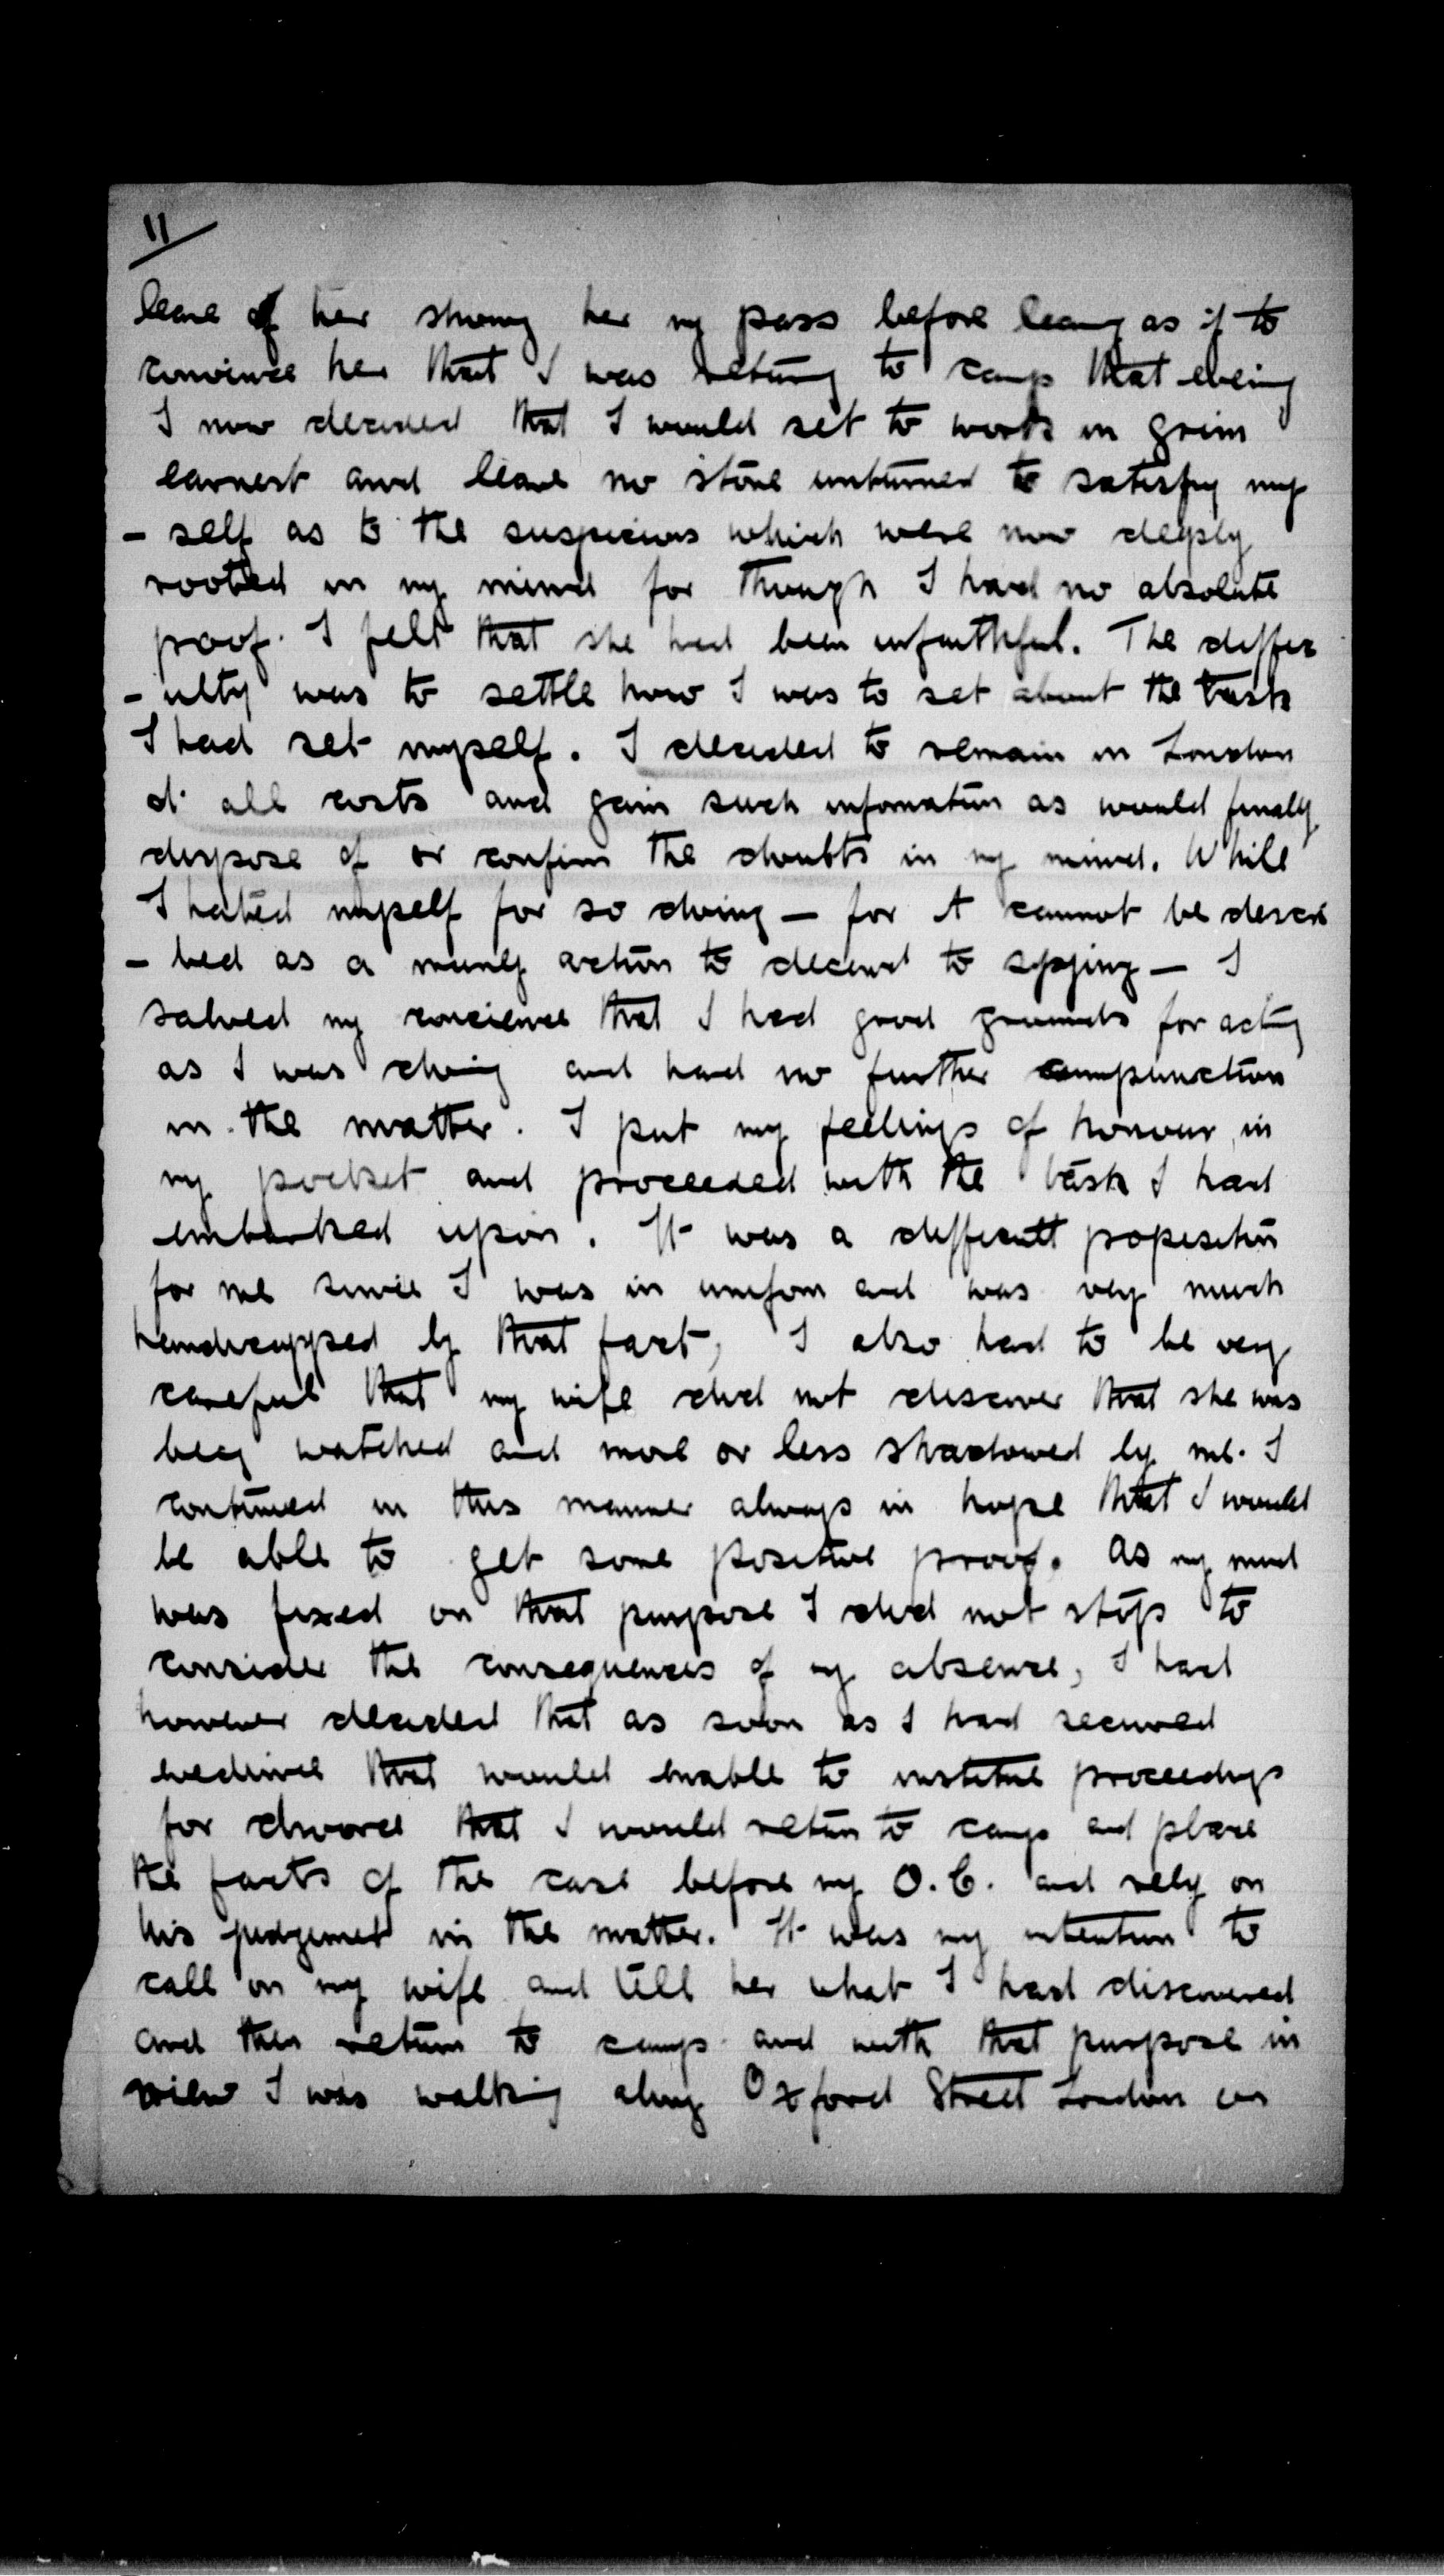 11
leave of her showing her my pass before leaving as if to
convince her that I was returning to camp that evening
I now decided that I would set to work in grim
earnest and leave no stone unturned to satisfy my
- self as to the suspicions which were now deeply
rooted in my mind for though I had no absolute
proof. I felt that she had been unfaithful. The diffic
- ulty was to settle how I was to set about the task
I had set myself. I decided to remain in London
at all costs and gain such information as would finally
dispose of or confirm the doubts in my mind. While
I hated myself for so doing — for it cannot be descri
- bed as a manly action to descend to spying — I
salved my concience that I had good grounds for acting
as I was doing and had no further compunction
in the matter. I put my feelings of honour in
my pocket and proceeded with the task I had
embarked upon. It was a difficult proposition
for me since I was in uniform and was very much
handicapped by that fact, I also had to be very
careful that my wife did not discover that she was
being watched and more or less shadowed by me. I
continued in this manner always in hope that I would
be able to get some positive proof. As my mind
was fixed on that purpose I did not stop to
consider the consequences of my absence, I had
however decided that as soon as I had secured
evedince that would enable to institute proceedings
for divorce that I would return to camp and place
the facts of the case before my O.C. and rely on
his judgement in the matter. It was my intention to
call on my wife and tell her what I had discovered
and then return to camp and with that purpose in
view I was walking along Oxford Street London on